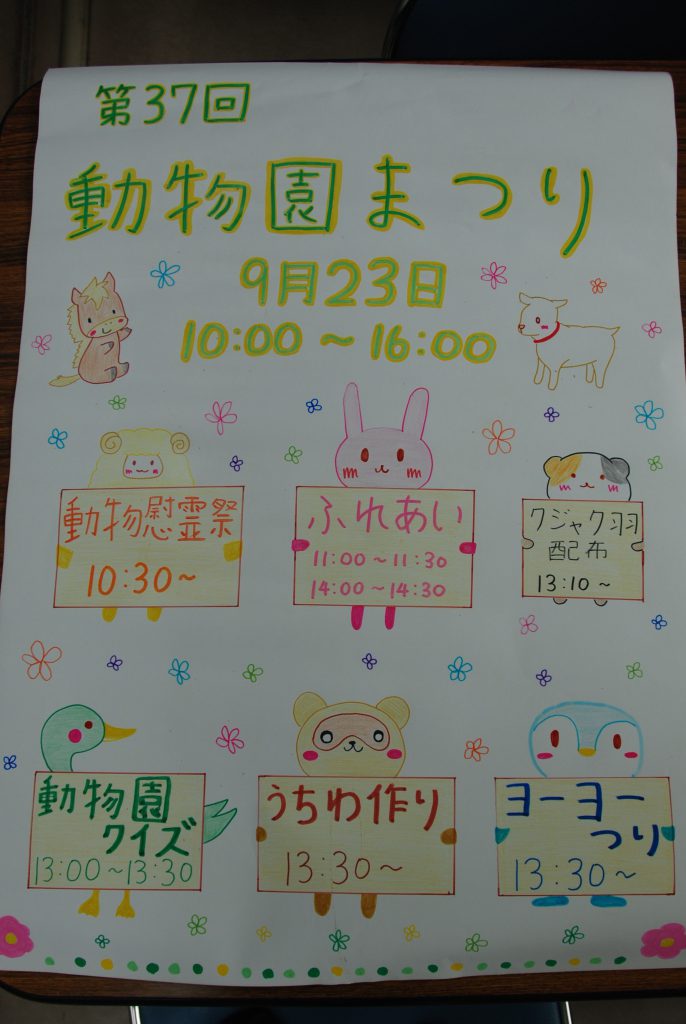 第37回
動物園まつり
9月23日
10:00～16:00
動物慰霊祭
10:30～
ふれあい
11:00～11:30
14:00～14:30
クジャク羽
配布
13:10～
動物園
クイズ
13:00～13:30
うちわ作り
13:30～
ヨーヨー
つり
13:30～